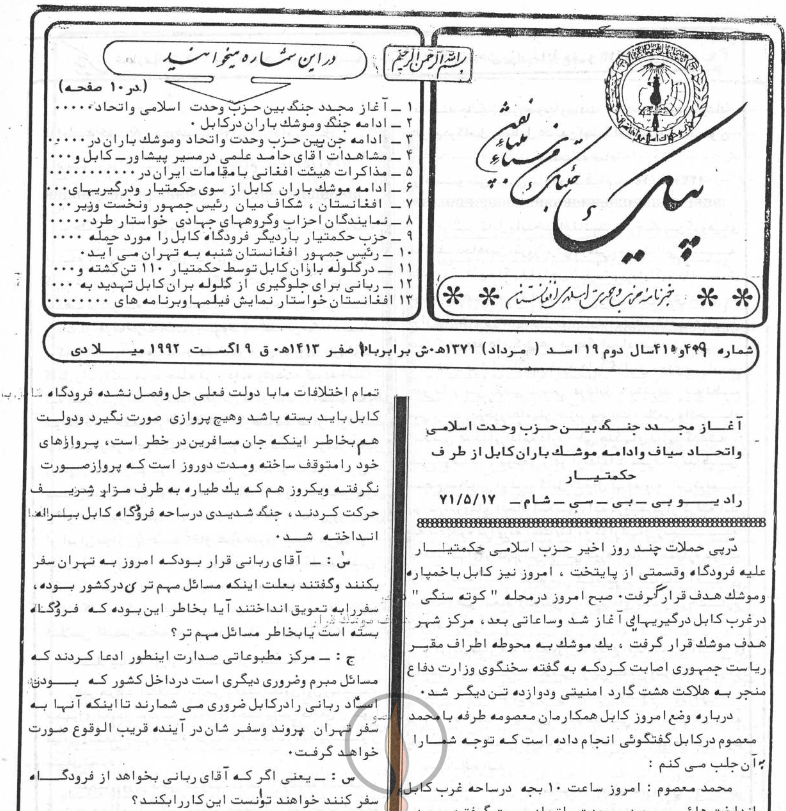 بسم الله الرحمن الرحیم
خبرنامه حزب وحدت اسلامی افغانستان
در این شماره میخوانید
(در ۱۰ صفحه)
۱ ــ آغاز مجدد جنگ بین حزب وحدت اسلامی واتحاد۰۰۰۰۰
۲ ــ ادامه جنگ وموشك باران درکابل ۰
۳ ــ ادامه جن بین حزب وحدت واتحاد وموشك باران در ۰۰۰۰۰
۴ ــ مشاهدات آقای حامد علمی درمسیر پیشاور ــ کابل و ۰۰۰
۵ ــ مذاکرات هیئت افغانی با مقامات ایران در ۰۰۰۰۰۰۰۰۰۰۰
۶ ــ ادامه موشك باران کابل از سوی حکمتیار ودرگیریهای۰۰۰
۷ ــ افغانستان ، شکاف میان رئیس جمهور ونخست وزیر ۰۰۰
۸ ــ نمایندگان احزاب وگروههای جهادی خواستار طرد۰۰۰۰۰
۹ ــ حزب حکمتیار باردیگر فرودگاه کابل را مورد حمله ۰۰۰۰
۱۰ ــ رئیس جمهور افغانستان شنبه به تهران می آید۰
۱۱ ــ درگلوله باران کابل توسط حکمتیار ۱۱۰ تن کشته و ۰۰۰
۱۲ ــ ربانی برای جلوگیری از گلوله بران کابل تهدید به ۰۰۰
۱۳ افغانستان خواستار نمایش فیلمها وبرنامه های ۰۰۰۰۰۰۰۰
سال دوم ۱۹ اسد ( مرداد) ۱۳۷۱ه۰ش برابربا صفر ۱۴۱۳ه۰ق ۹ اگست ۱۹۹۲ میــلادی
آغــاز مجــدد جنگ بیــن حــزب وحدت اسلامی
واتحــاد سیاف وادامـه موشـك باران کابل از طرف
حکمتیــار
رادیــو بی ــ بی ــ سی ــ شام ــ ۷۱/۵/۱۷
درپی حملات چند روز اخیر حزب اسلامی حکمتیــار
علیه فرودگاه وقسمتی از پایتخت ، امروز نیز کابل باخمپاره
وموشك هدف قرارگرفت۰ صبح امروز درمحله " کوته سنگی"
درغرب کابل درگیریهای آغاز شد وساعاتی بعد، مرکز شهر
هدف موشك قرار گرفت ، یك موشك به محوطه اطراف مقــر
ریاست جمهوری اصابت کردکـه به گفته سخنگوی وزارت دفاع
منجر به هلاکت هشت گارد امنیتی ودوازده تـن دیگـر شد۰
درباره وضع امروز کابل همکارمان معصومه طرفه بامحمد
معصوم درکابل گفتگوئی انجام داده است که توجه شمـارا
به آن جلب می کنم :
محمد معصوم : امروز ساعت ۱۰ بجه درساحه غرب کابل
تمام اختلافات مابا دولت فعلی حل وفصل نشده فرودگاه
کابل بایـد بسته باشـد وهیچ پروازی صورت نگیرد ودولــت
هم بخاطر اینکه جان مسافرین در خطر است، پروازهای
خود رامتوقف ساخته ومدت دوروز است که پرواز صورت
نگرفته ویکروز هم که یك طیاره به طرف مـزار شریــف
حرکت کردند ، جنگ شدیدی درساحه فرودگاه کابل
انداختـه شــد۰
س : ــ آقای ربانی قرار بودکه امروز به تهران سفر
بکنند وگفتند بعلت اینکه مسائل مهم تری درکشور بوده،
سفررابه تعویق انداختند آیا بخاطر این بوده که فرودگاه
بسته است یابخاطر مسائل مهم تر؟
ج : ــ مرکز مطبوعاتی صدارت اینطور ادعا کردند که
مسائل مبرم وضروری دیگری است درداخل کشور که بــودن
استاد ربانی رادرکابل ضروری می شمارند تااینکه آنها به
سفر تهران بروند وسفر شان در آینده قریب الوقوع صورت
خواهد گرفت۰
س : ــ یعنی اگر که آقای ربانی بخواهد از فرودگــاه
سفر کنند خواهند توانست این کاررابکنند؟